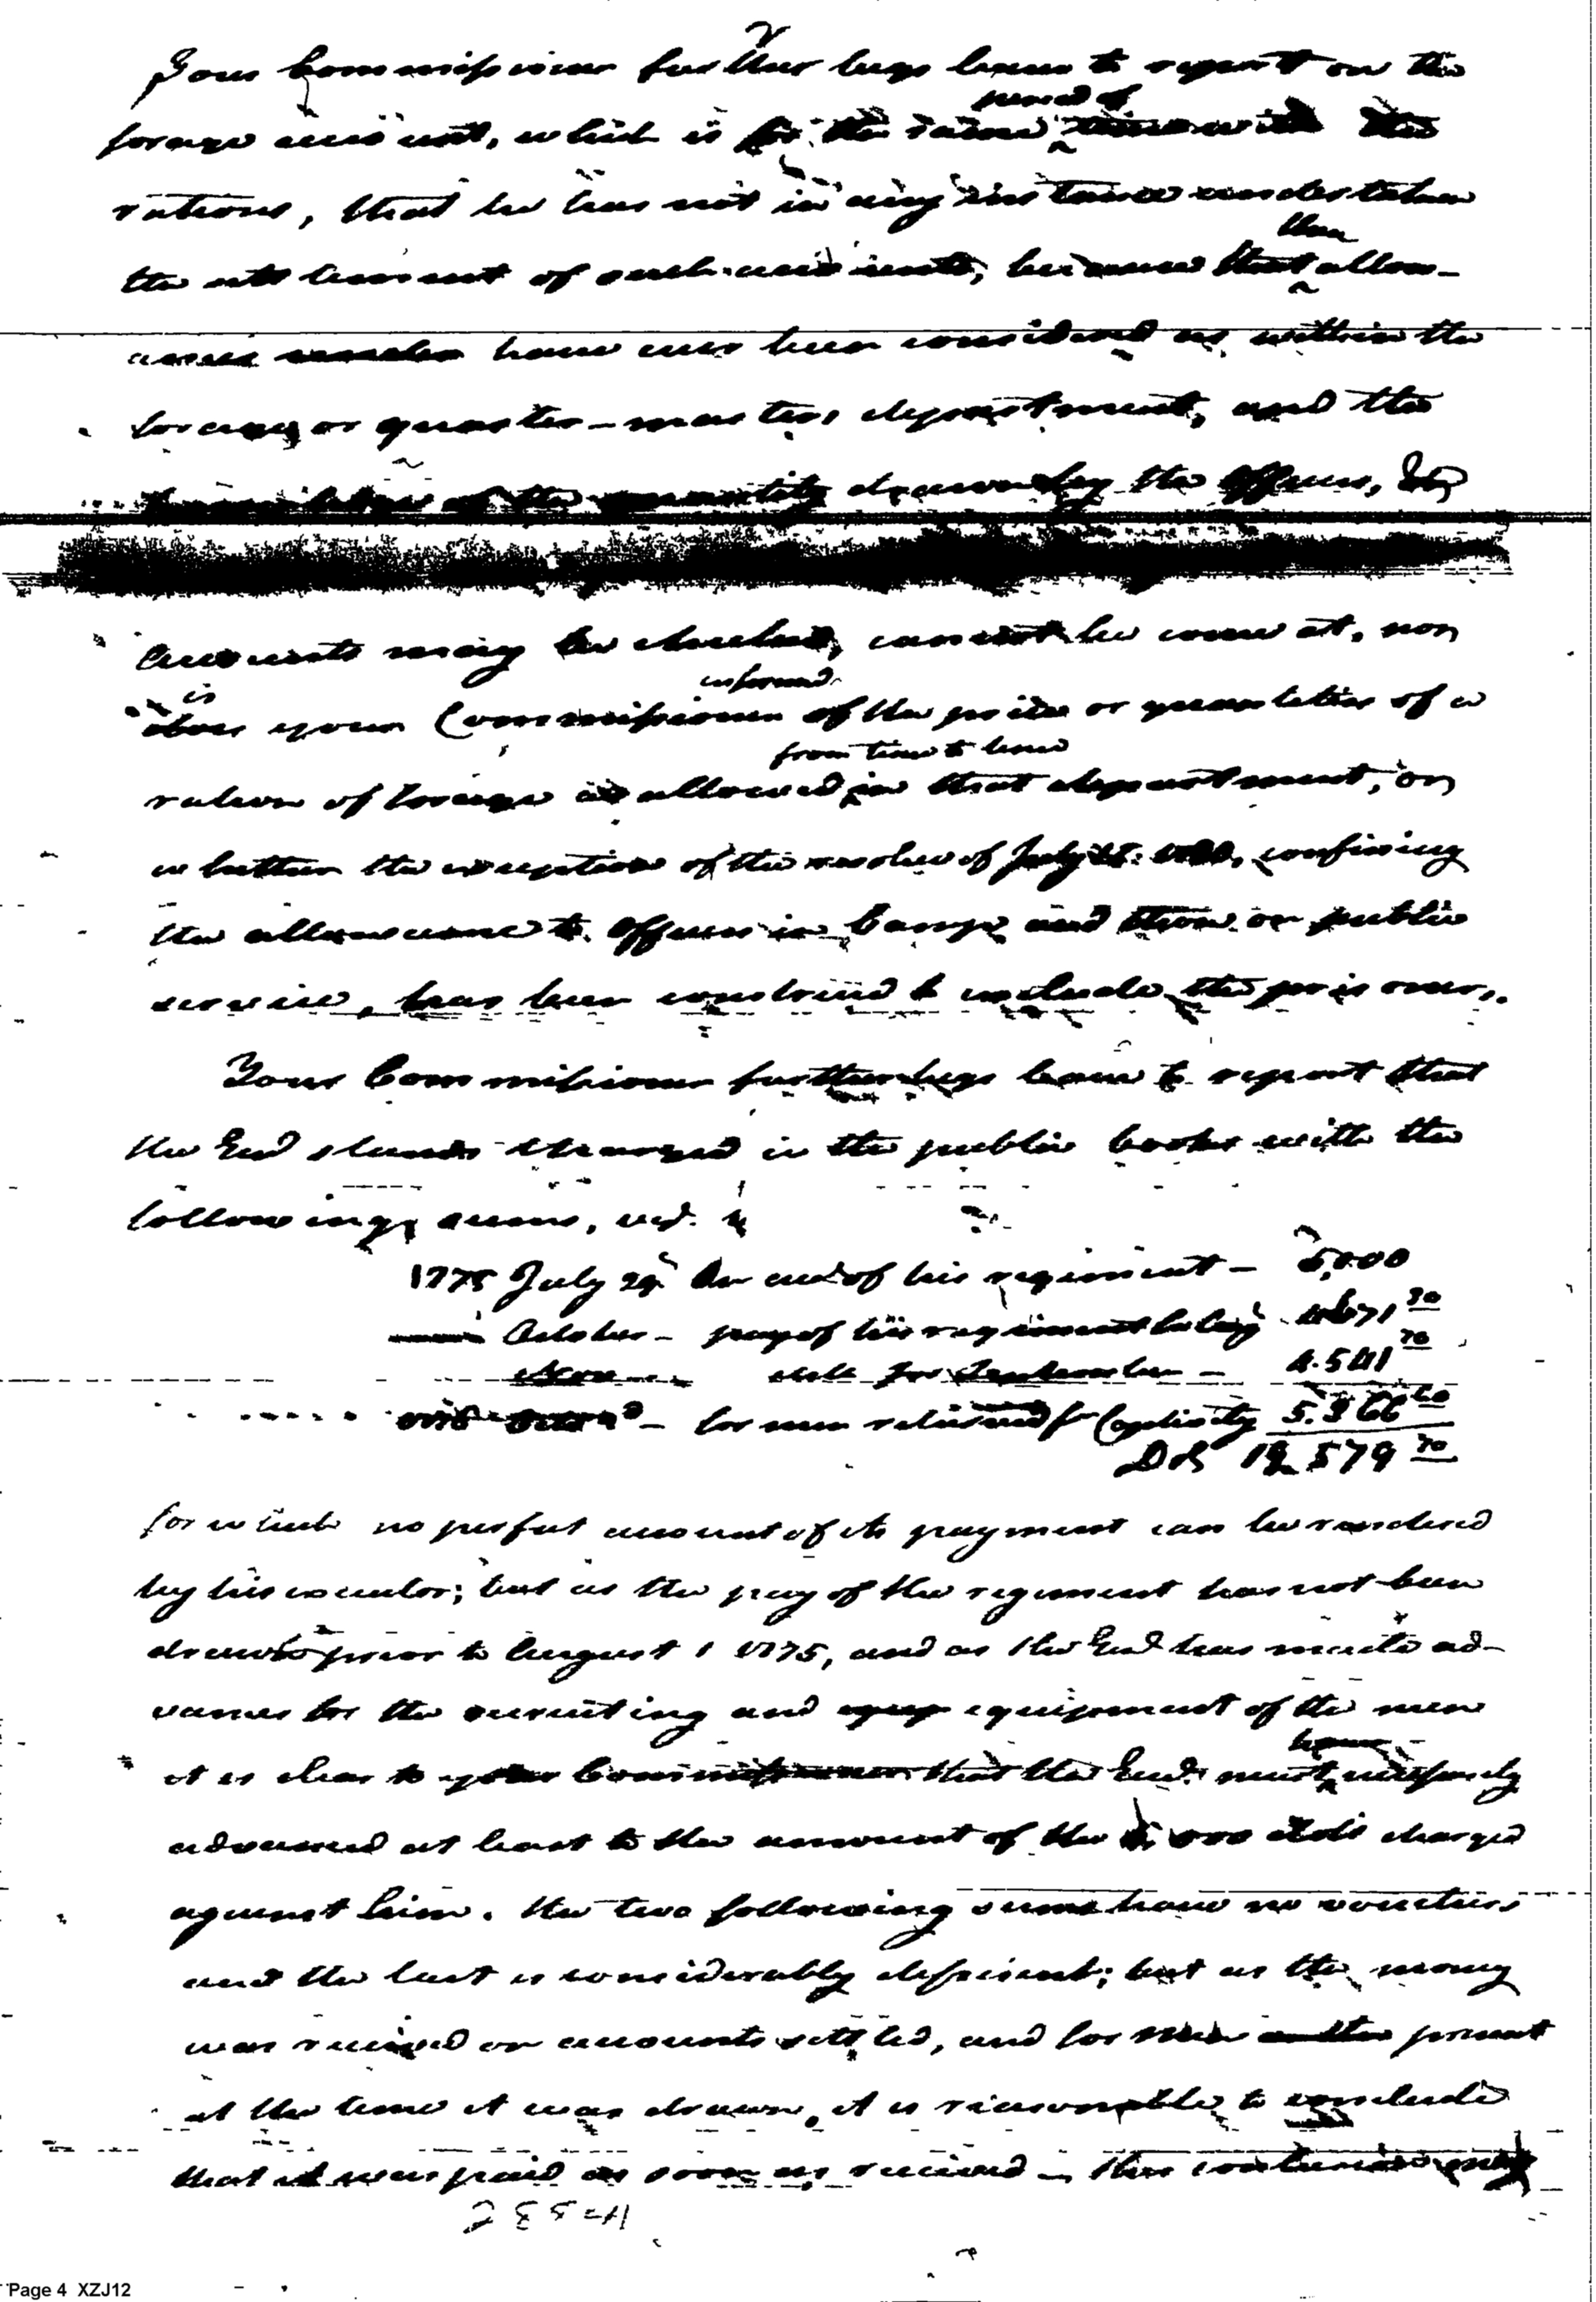 Your Commissioner further begs leave to report on the
period of
forage account, which is for the same
rations, that he has not in any instance undertaken
these
the settlement of such accounts, because that allow-
ances have ever been considered as within the
forage or quarter-masters department, and the
of the quantity drawn by the Officers,
Accounts may be checked, cannot be come at, nor
is informed
does your Commissioner of the price or quantities of a
from time to time
ration of forage as allowed in that department, or
whether the exception of the resolve of July confining
the allowance to Officers in Camp and those on public
service, has been construed to include the prisoners.
Your Commissioner further begs leave to report that
the Eud stands charged in the public books with the
following sums, vizt.
1775 July 29 On acct of his regiment – 5,000
October – pay of his regiment 4671 30
Nov ditto for September – 4.541 70
for men returned fr Captivity 5.366 60
Drs 19 579 70
for which no perfect account of its payment can be rendered
by his executor; but as the pay of the regiment has not been
drawn prior to August 1 1775, and as the has made ad-
vances for the recruiting and equip equipment of the men
have
it is clear to your Commissioner that the must necessarily
advanced at least to the amount of the 5,000 dols charged
against him. the two following sums have no vouchers
and the last is considerably deficient; but as the money
was received on accounts settled, and for men present
at the time it was drawn, it is reasonable to conclude
that it was paid as soon as received – this conclusion only
Page 4 XZJ12